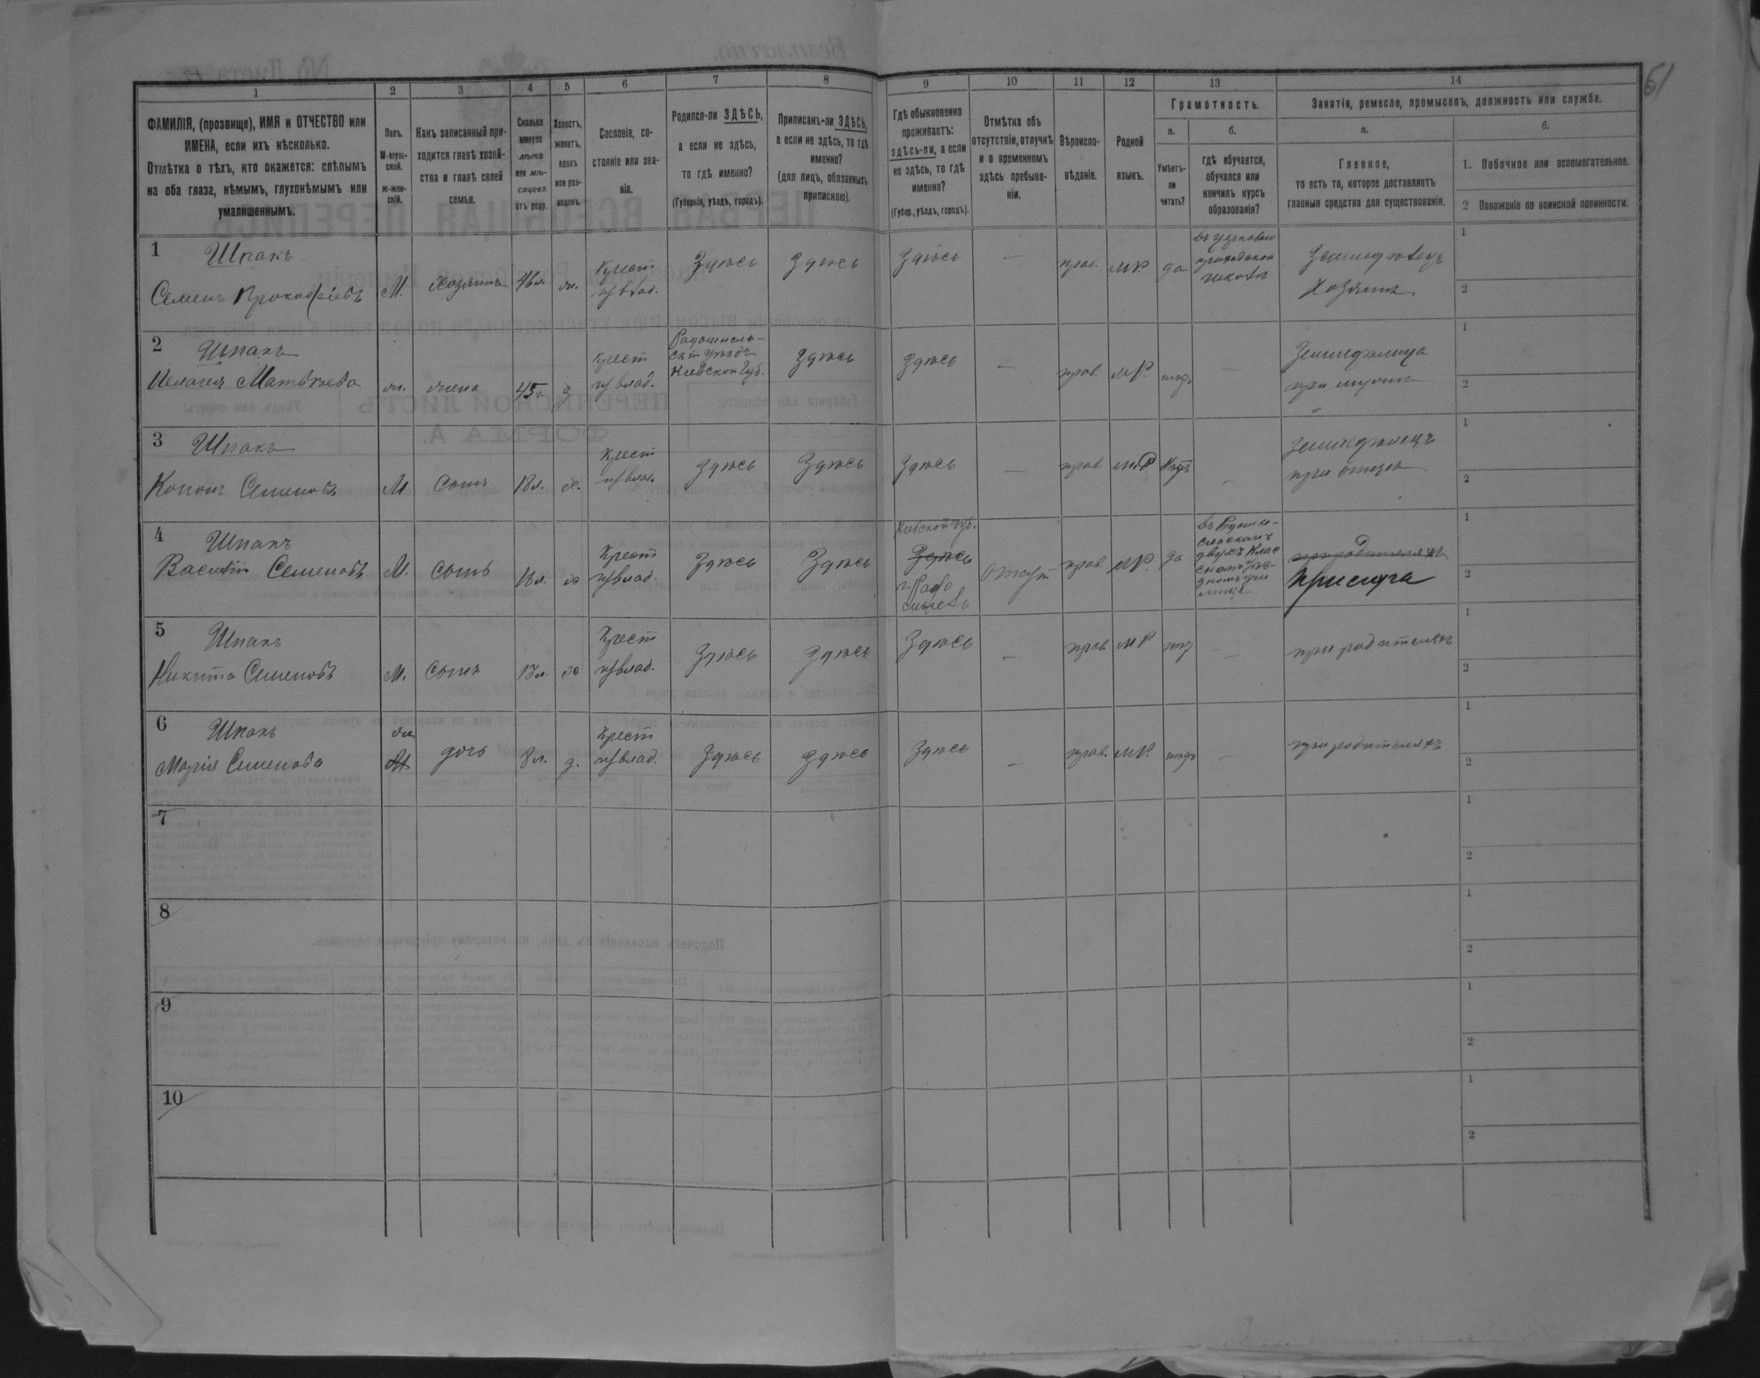 61
1 2 3 4 5 6 7 8 9 10 11 12 13 14
ФАМИЛІЯ, (прозвище), ИМЯ и ОТЧЕСТВО или
ИМЕНА, если ихъ нѣсколько.
Отмѣтка о тѣхъ, кто окажется: слѣпымъ
на оба глаза, нѣмымъ, глухонѣмымъ или
умалишеннымъ.
Полъ.
М-муж-
ской.
ж-жен-
скій.
Какъ записанный при-
ходится главѣ хозяй-
ства и главѣ своей
семьи.
Сколько
минуло
лѣтъ
или мѣ-
сяцевъ
отъ роду.
Холостъ,
женатъ,
вдовъ
или раз-
веденъ.
Сословіе, со-
стояніе или зва-
ніе.
Родился-ли ЗДѢСЬ,
а если не здѣсь,
то гдѣ именно?
(Губернія, уѣздъ, городъ).
Приписанъ-ли ЗДѢСЬ,
а если не здѣсь, то гдѣ
именно?
(для лицъ, обязанныхъ
припискою).
Гдѣ обыкновенно
проживаетъ:
здѣсь-ли, а если
не здѣсь, то гдѣ
именно?
(Губер., уѣздъ, городъ).
Отмѣтка объ
отсутствіи, отлучкѣ
и о временномъ
здѣсь пребыва-
ніи.
Вѣроиспо-
вѣданіе.
Родной
языкъ.
Грамотность.
а.
Умѣетъ-
ли
читать?
б.
гдѣ обучается,
обучался или
кончилъ курсъ
образованія?
Занятіе, ремесло, промыселъ, должность или служба.
а.
Главное,
то есть то, которое доставляетъ
главныя средства для существованія.
б.
1. Побочное или вспомогательное.
2 Положеніе по воинской повинности.
1 Шпакъ
Семенъ Прокофіевъ М. Хозяинъ 46 л. ж. Крест. из влад. Здѣсь Здѣсь Здѣсь — прав. МР да въ церковно приходской школѣ Земледѣлецъ Хозяинъ 1
2
2 Шпакъ
Пелагея Матвѣева ж. жена 45 л. з. Крест из влад. Радомысль-
скій уѣздъ
Кіевской Губ. Здѣсь Здѣсь — прав. МР. нѣтъ — Земледѣлица при мужѣ 1
2
3 Шпакъ
Кононъ Семеновъ М сынъ 18 л. х. Крест из влад. Здѣсь Здѣсь Здѣсь — прав. МР нѣтъ — Земледѣлецъ при отцѣ 1
2
4 Шпакъ
Василій Семеновъ М. сынъ 16 л. хо Крест из влад. Здѣсь Здѣсь Кіевской губ.
Здѣсь
г. Радо
мыслѣ Отсут прав. МР. да при родителяхъ
Прислуга 1
2
5 Шпакъ
Никита Семеновъ М. сынъ 13 л. хо Крест из влад. Здѣсь Здѣсь Здѣсь — прав МР нѣтъ — при родителяхъ 1
2
6 Шпакъ
Марія Семенова ж М дочь 8 л. д. Крест из влад. Здѣсь Здѣсь Здѣсь — прав. МР. нѣтъ — при родителяхъ 1
2
7 1
2
8 1
2
9 1
2
10 1
2